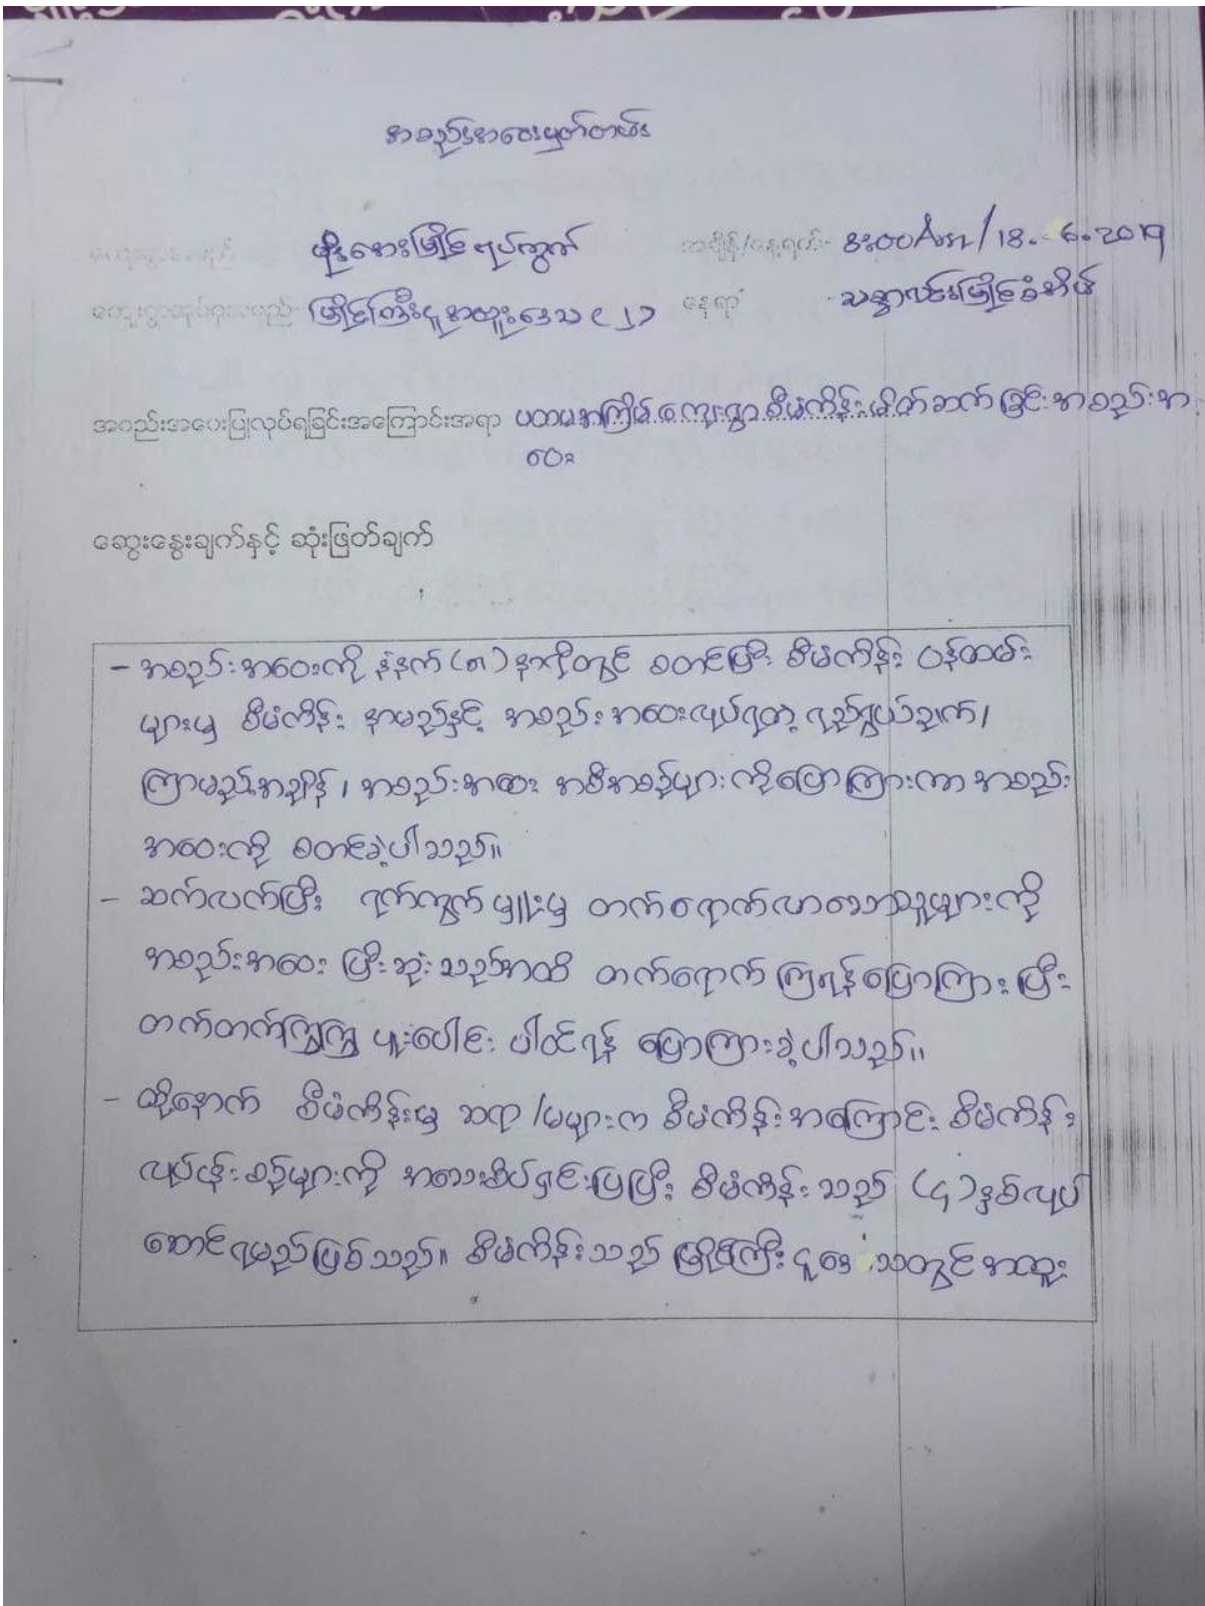 အစည်းအဝေးမှတ်တမ်း
ကျေးရွာအမည် မိုးအေးမြိုင် ရပ်ကွက် အချိန်/နေ့ရက်- 8:00 Am / 18. 6. 2019
ကျေးရွာအုပ်စုအမည်- မြိုင်ကြီးငူအထူးဒေသ (၂) နေရာ - မြိုင်
အစည်းအဝေးပြုလုပ်ရခြင်းအကြောင်းအရာ ပထမအကြိမ် ကျေးရွာ စီမံကိန်း မိတ်ဆက် ခြင်း အစည်းအ
ဝေး
ဆွေးနွေးချက်နှင့် ဆုံးဖြတ်ချက်
- အစည်းအဝေးကို နံနက် (၈) နာရီတွင် စတင်ပြီး စီမံကိန်း ဝန်ထမ်း
များမှ စီမံကိန်း နာမည်နှင့် အစည်းအဝေးလုပ်ရတဲ့ ရည်ရွယ်ချက်၊
ကြာမည့်အချိန်၊ အစည်းအဝေး အစီအစဉ်များ ကိုပြောကြားကာ အစည်း
အဝေးကို စတင်ခဲ့ပါသည်။
- ဆက်လက်ပြီး ရက်ကွက်မှူးမှ တက်ရောက်လာသောသူများကို
အစည်းအဝေး ပြီးဆုံးသည်အထိ တက်ရောက် ကြရန်ပြောကြား ပြီး
တက်တက်ကြွကြွ ပူးပေါင်း ပါဝင်ရန် ပြောကြားခဲ့ပါသည်။
- ထို့နောက် စီမံကိန်းမှ ဆရာ/မများက စီမံကိန်းအကြောင်း စီမံကိန်း
လုပ်ငန်းစဉ်များကို အသေးစိပ်ရှင်းပြပြီး စီမံကိန်းသည် (၄) နှစ်လုပ်
ဆောင်ရမည်ဖြစ်သည်။ စီမံကိန်းသည် မြိုင်ကြီးငူဒေသတွင် အထူး